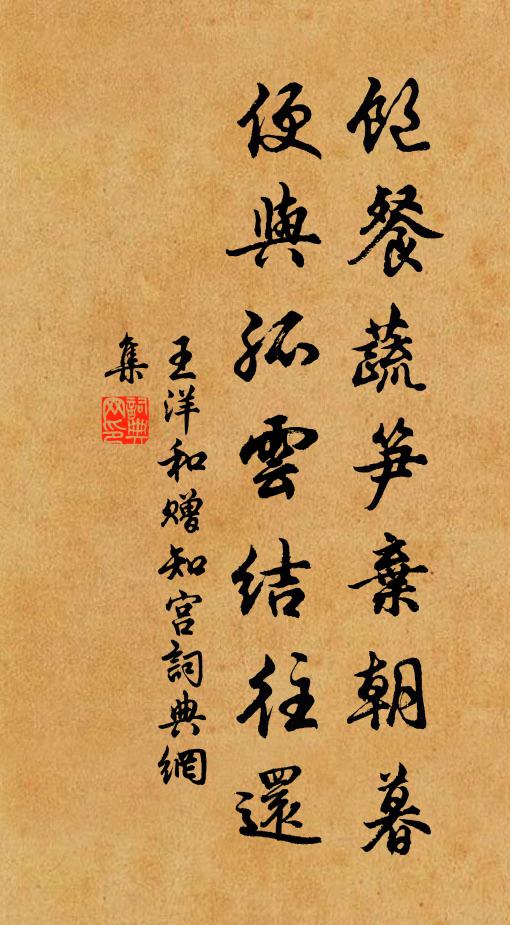 飽餐蔬笋棄朝暮
便與孤雲結往還
王洋和贈知宮詞典網
集
詞典網印